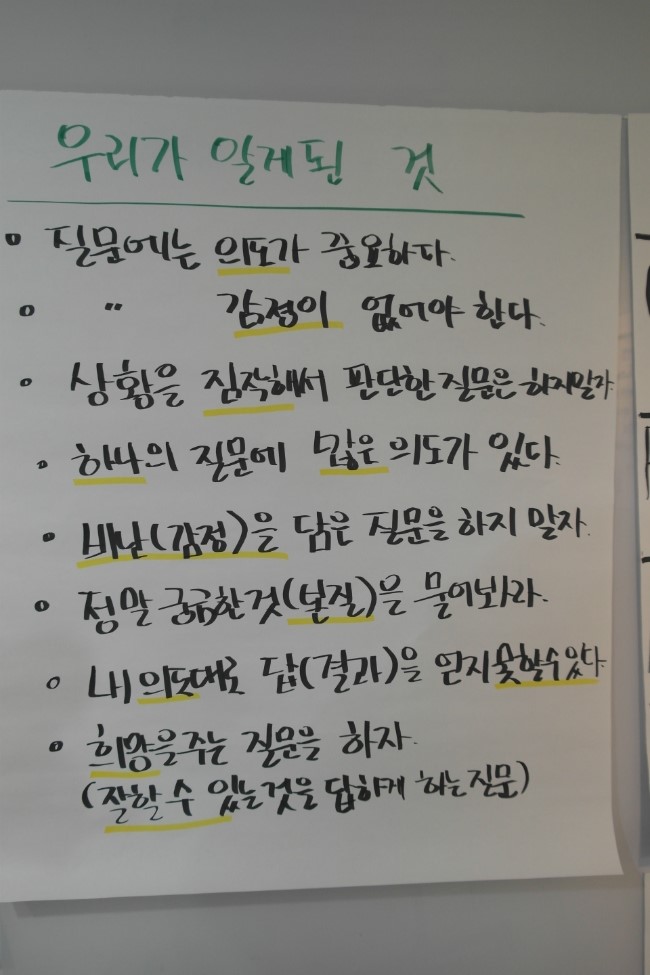 우리가 알게된 것
• 질문에는 의도가 중요하다.
• " 감정이 없어야 한다.
• 상황을 짐작해서 판단한 질문은 하지말자
• 하나의 질문에 많은 의도가 있다.
• 비난(감정)을 담은 질문을 하지 말자.
• 정말 궁금한것(본질)을 물어보라.
• 내 의도대로 답(결과)을 얻지못할수있다
• 희망을주는 질문을 하자.
(잘할 수 있는것을 답하게 하는질문)